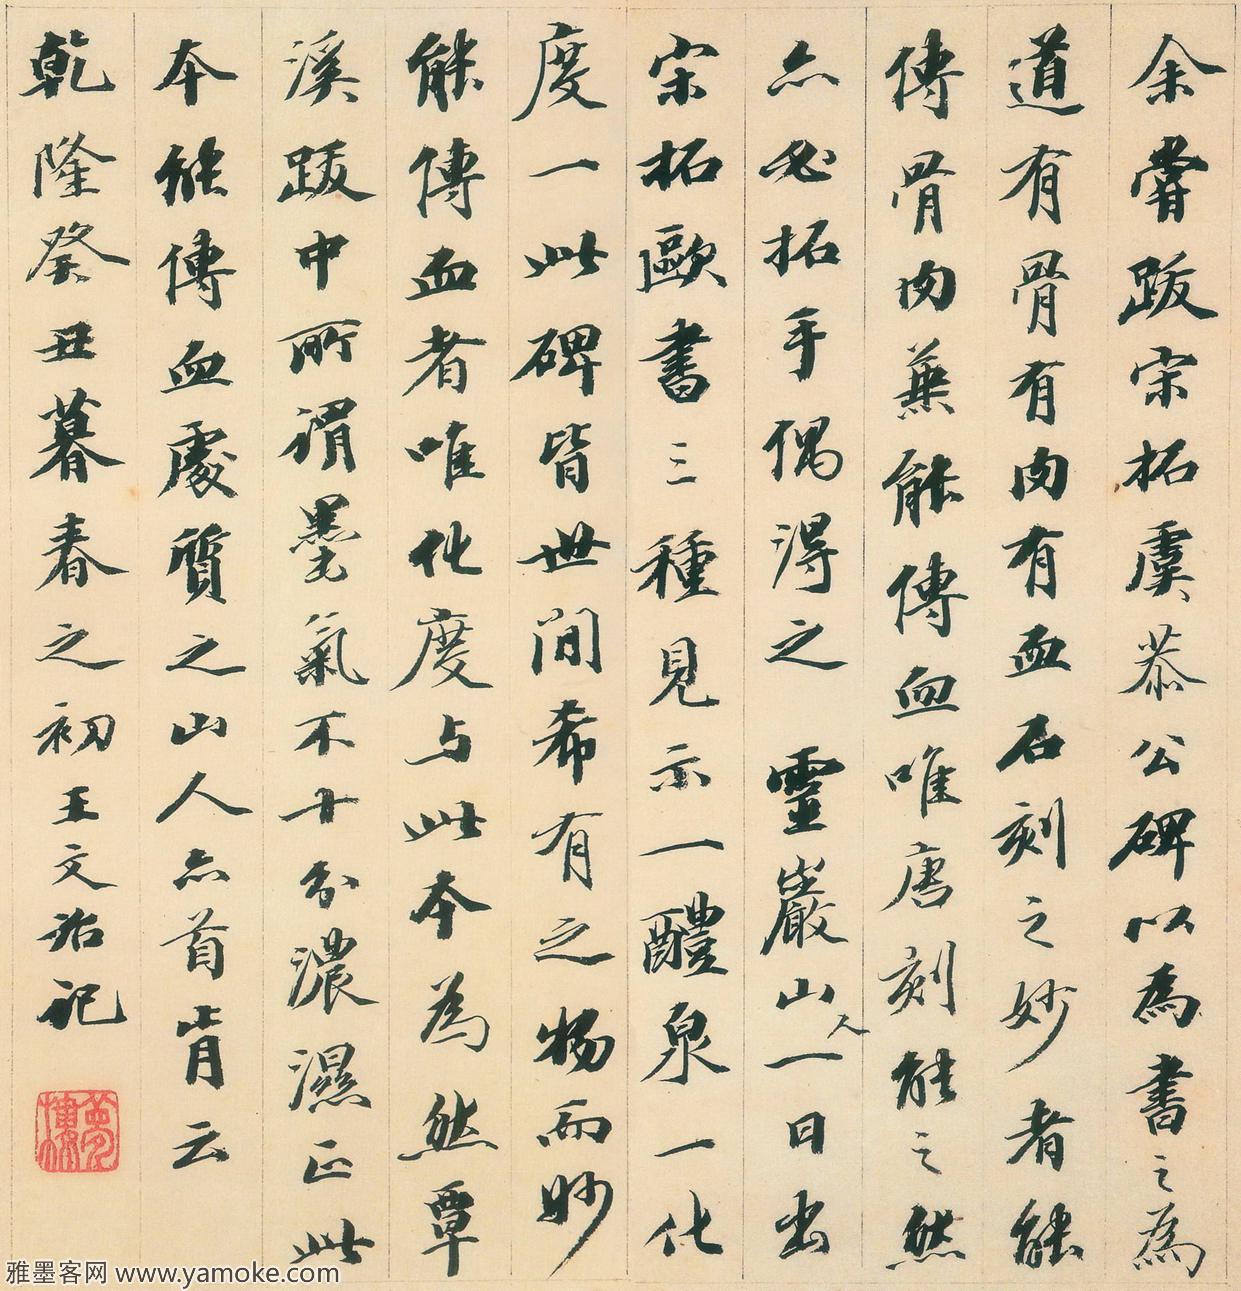 余嘗跋宋拓虞恭公碑以為書之為
道有骨有肉有血石刻之妙者能
傳骨肉兼能傳血唯唐刻能之然
亦必拓手偶得之 靈巖山人一日出
宋拓歐書三種見示一醴泉一化
度一此碑皆世間希有之物而妙
能傳血者唯化度与此本為然覃
溪跋中所謂墨氣不十分濃濕正此
本能傳血處質之山人亦首肯云
乾隆癸丑暮春之初王文治記
夢樓
雅墨客网 www.yamoke.com